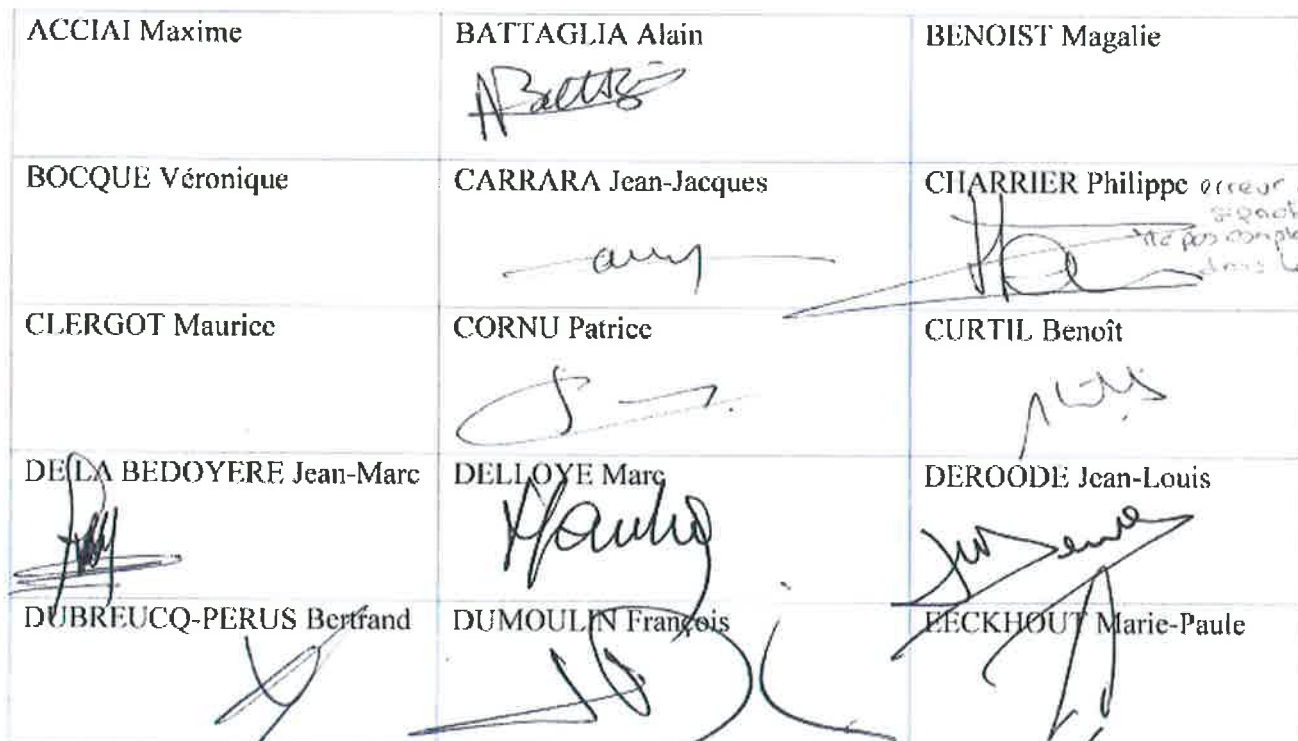 ACCIAI Maxime
BATTAGLIA Alain
BENOIST Magalie
BOCQUE Véronique
CARRARA Jean-Jacques
CHARRIER Philippe erreur
pas
dans
CLERGOT Maurice
CORNU Patrice
CURTIL Benoît
DE LA BEDOYERE Jean-Marc
DELLOYE Marc
DEROODE Jean-Louis
DUBREUCQ-PERUS Bertrand
DUMOULIN François
EECKHOUT Marie-Paule